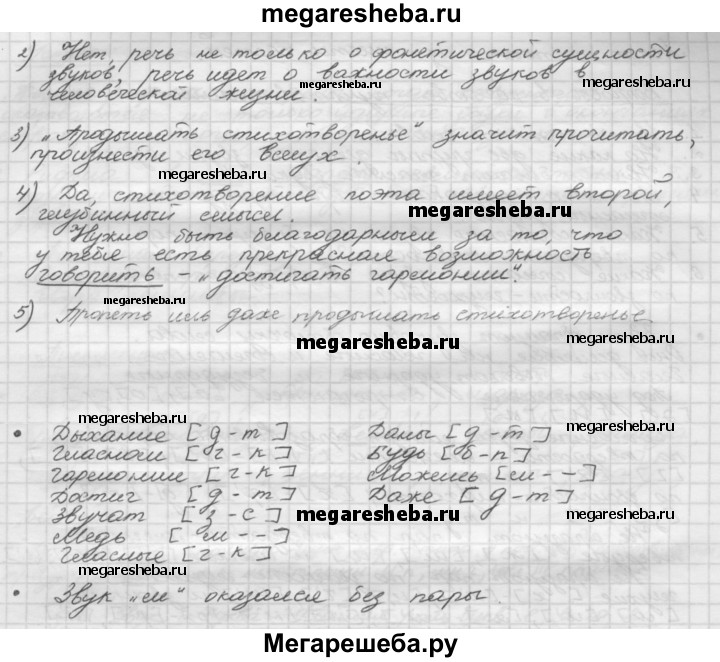 megaresheba.ru
2) Нет, речь не только о фонетической сущности
звуков, речь идет о важности звуков в
человеческой жизни.
megaresheba.ru
megaresheba.ru
3) „Продышать стихотворенье" значит прочитать,
произнести его вслух.
megaresheba.ru
megaresheba.ru
4) Да, стихотворение поэта имеет второй,
глубинный смысл.
megaresheba.ru
Нужно быть благодарным за то, что
у тебя есть прекрасная возможность
говорить – „достигать гармонии".
megaresheba.ru
megaresheba.ru
5) Пропеть иль даже продышать стихотворенье
megaresheba.ru
megaresheba.ru
megaresheba.ru
• Дыхание [д-т] Даны [д-т]
Гласном [г-к] Будь [б-п]
Гармонии [г-к] Можешь [м--]
Достиг [д-т] Даже [д-т]
Звучат [з-с]
megaresheba.ru
megaresheba.ru
Медь [м--]
Гласные [г-к]
megaresheba.ru
• Звук „м" оказался без пары.
Мегарешеба.ру